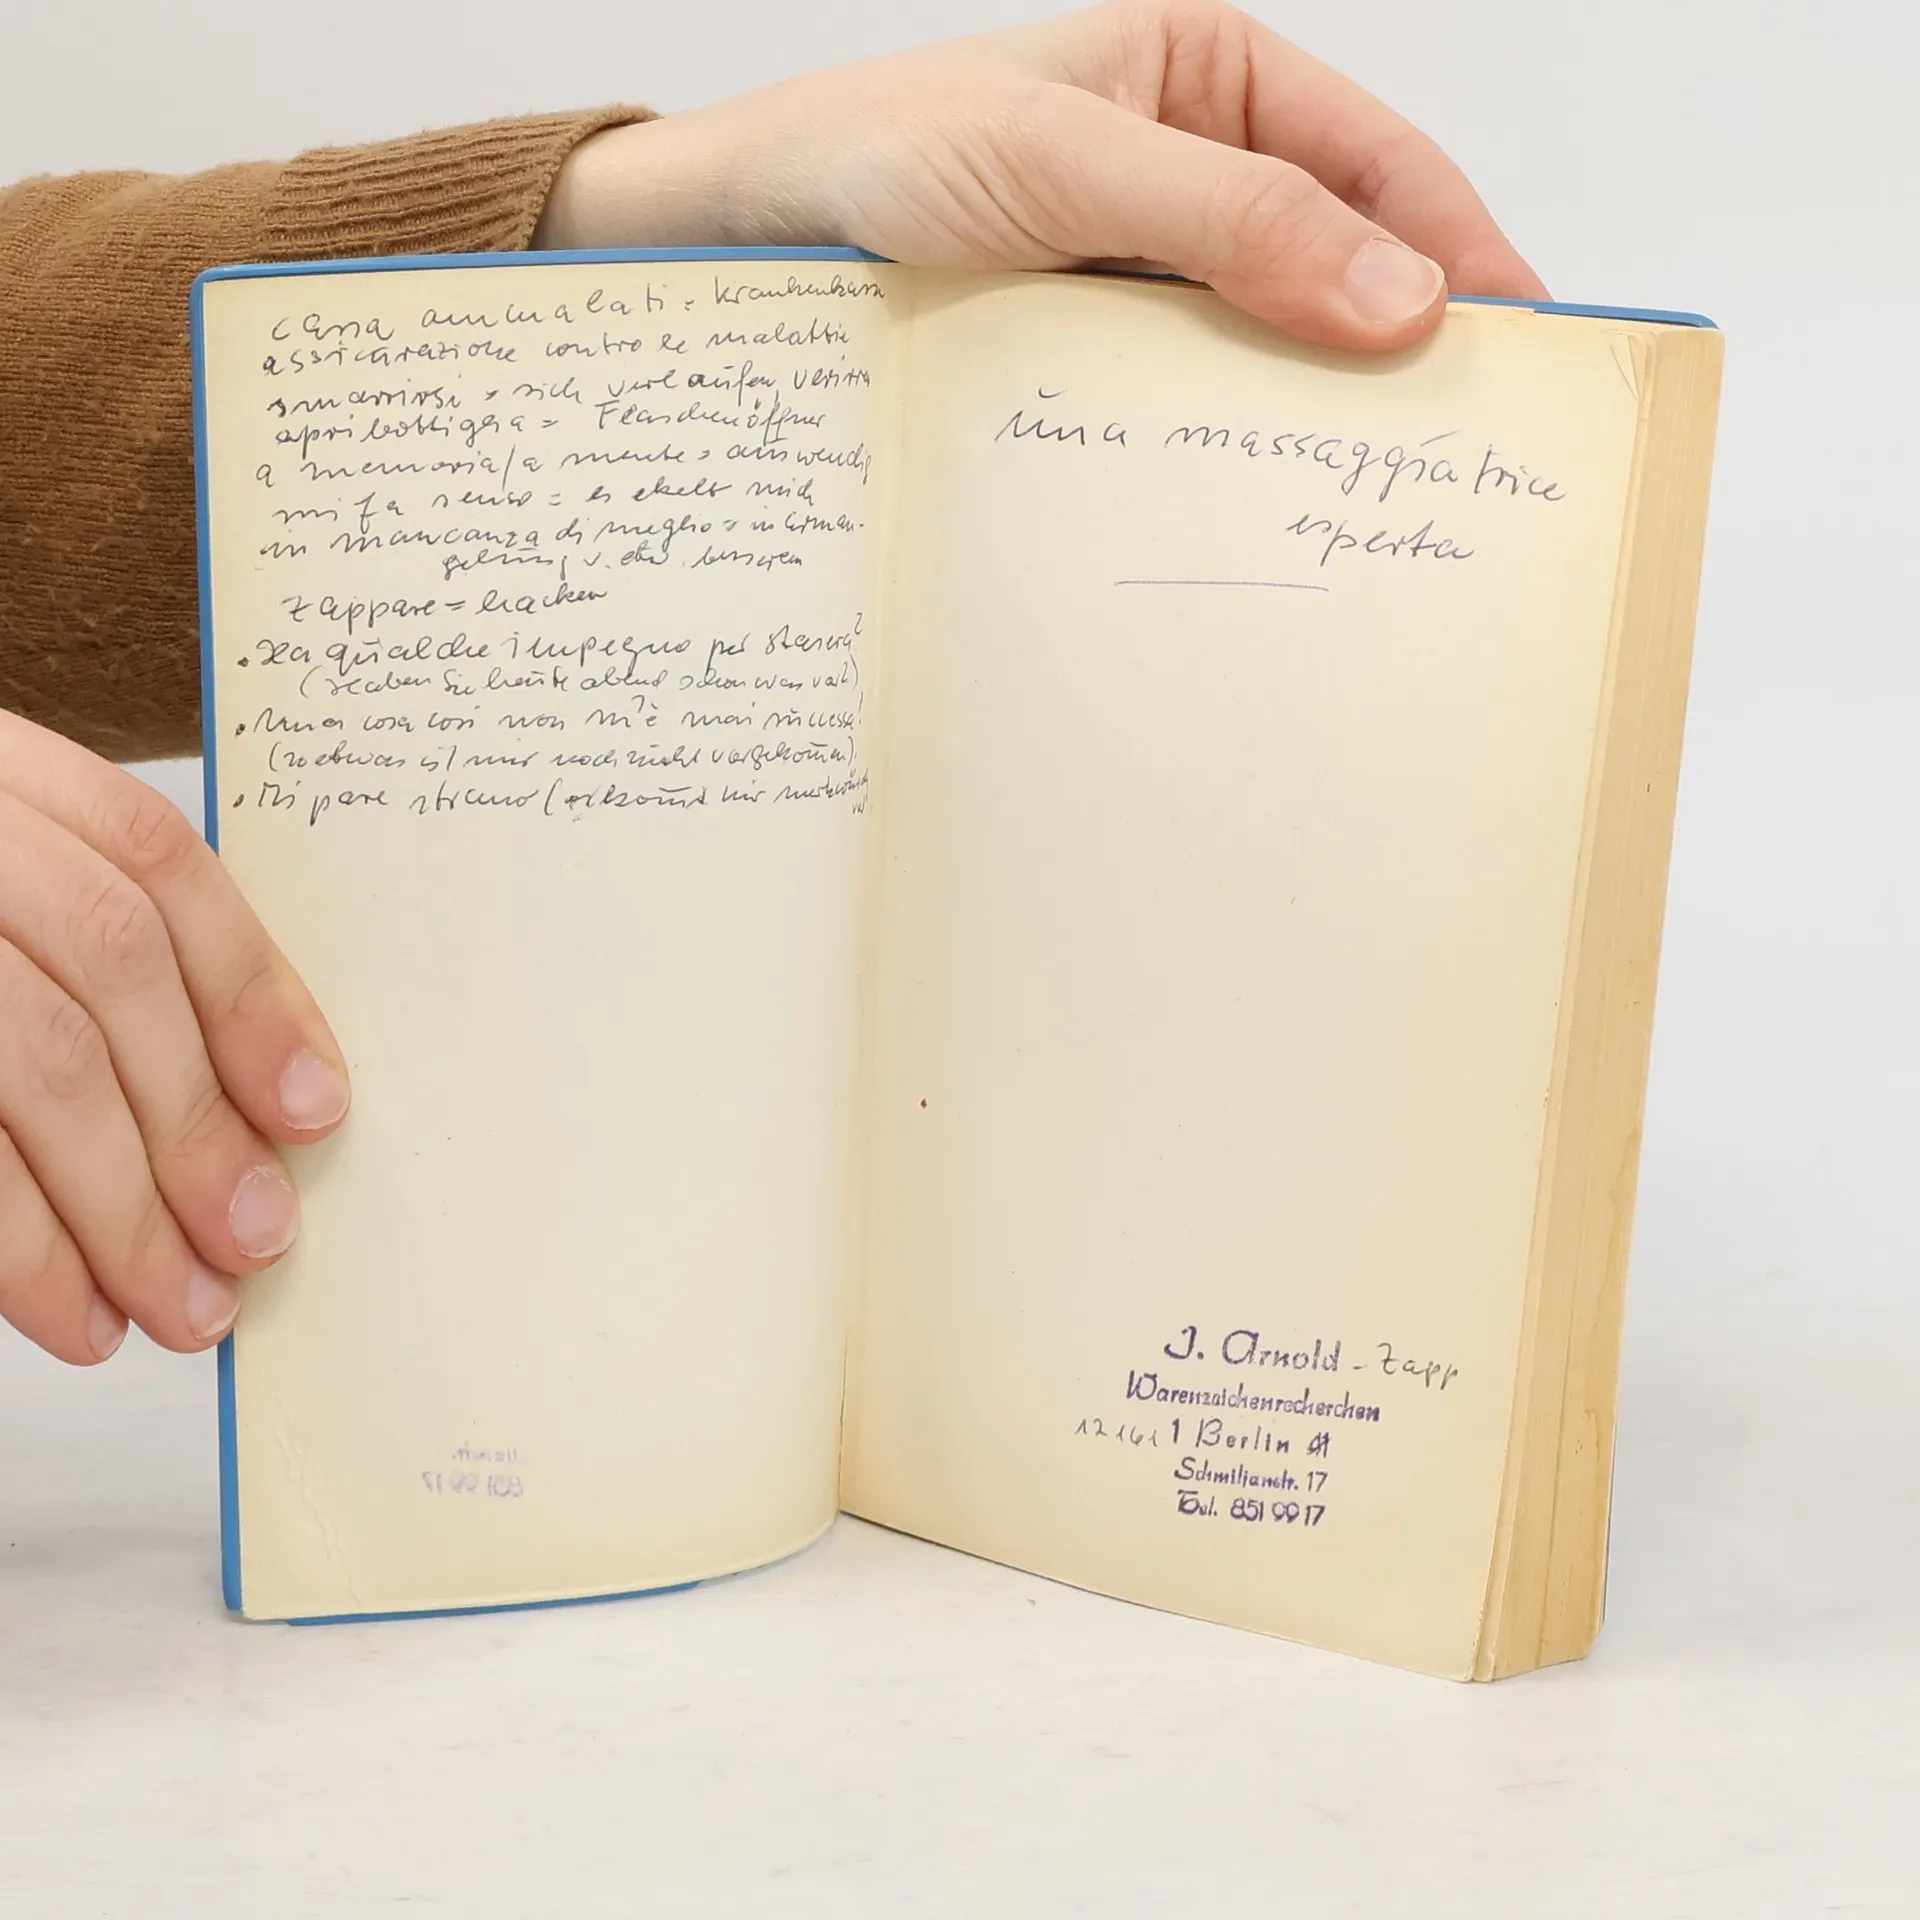 cassa ammalati = Krankenkasse
assicurazione contro le malattie
smarrirsi = sich verlaufen, verirren
apribottiglia = Flaschenöffner
a memoria/a mente = auswendig
mi fa senso = es ekelt mich
in mancanza di meglio = in Erman-
gelung v. etw. besserem
zappare = hacken
• Ha qualche impegno per stasera?
(Haben Sie heute abend schon was vor?)
• Una cosa così non m'è mai successa!
(so etwas ist mir noch nicht vorgekom̅en).
• Mi pare strano (es kom̅t mir merkwürdig
vor
una massaggiatrice
esperta
J. Arnold - Zapp
Warenzeichenrecherchen
12161 1 Berlin 41
Schmiljanstr. 17
Tel. 851 99 17